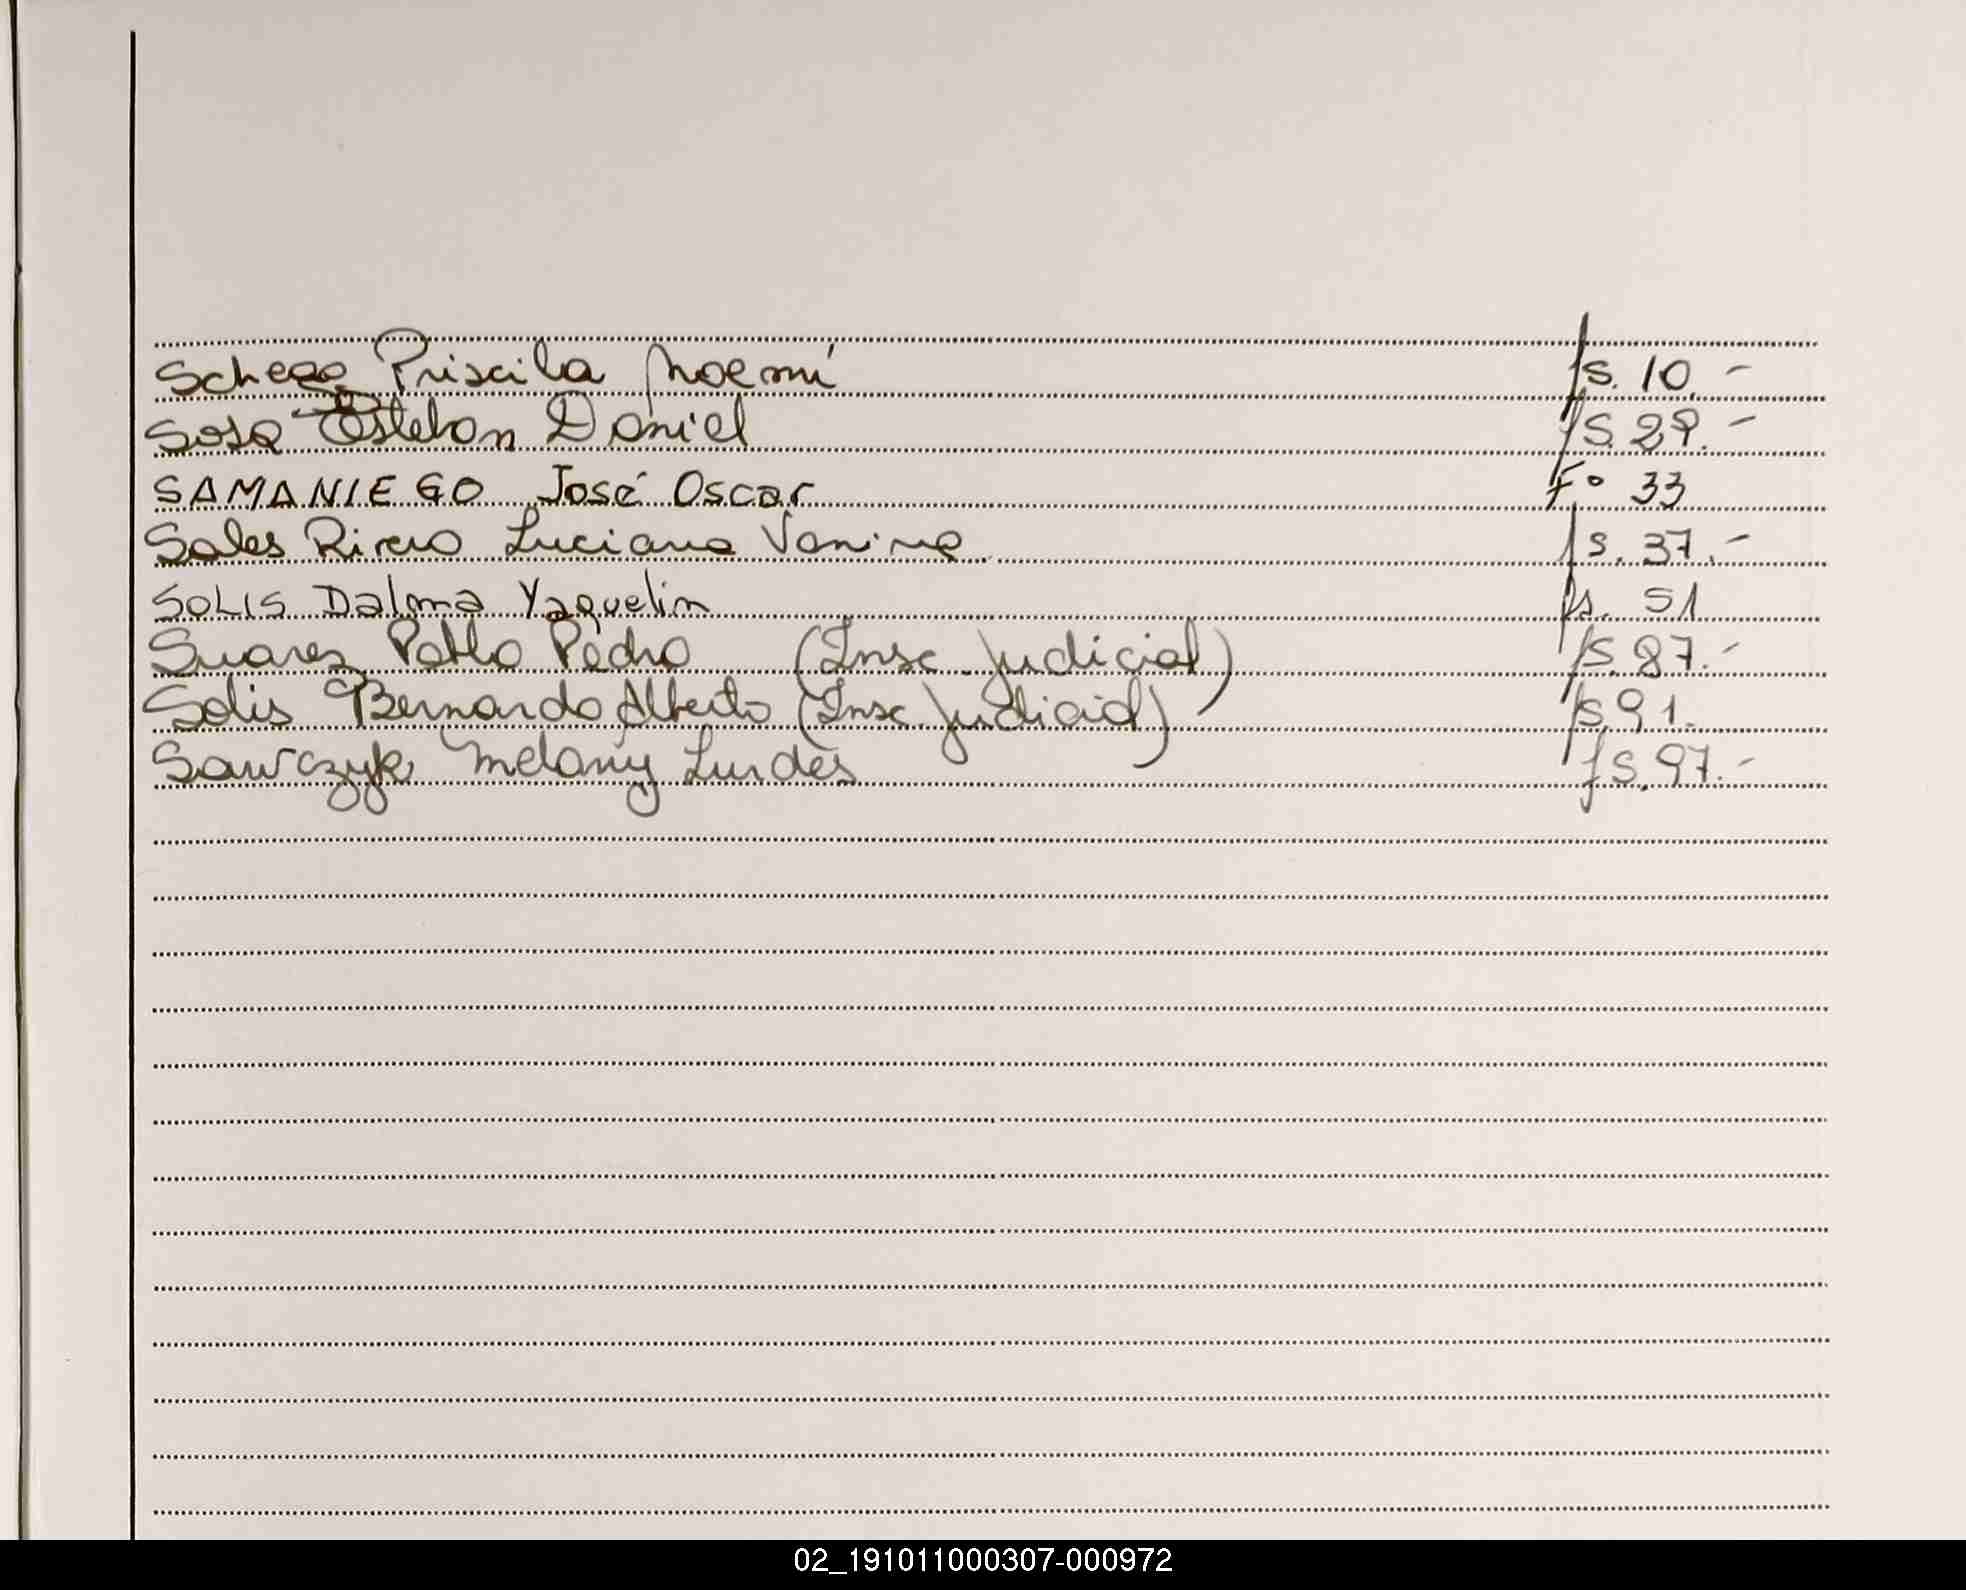 Priscila Noemí fs. 10.-
Sosa Esteban Daniel fs. 29.-
SAMANIEGO José Oscar F° 33
Sales Rivero Luciana Vanina fs. 37.-
SOLIS Dalma Yaquelin fs. 51
Suarez Pablo Pedro (Insc. Judicial) fs. 87.-
Solis Bernardo Alberto (Insc. Judicial) fs. 91.
Sawczyk Melany Lurdes fs. 97.-
02_191011000307-000972